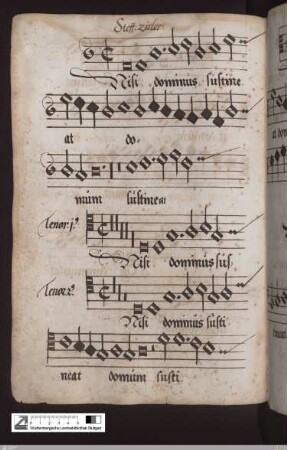 Steff. zirler
Nisi dominus sustine
at do-
mum sustineat
Tenor. j.
Nisi dominus sus
Tenor 2.
Nisi dominus susti
neat domum susti
Württembergische Landesbibliothek Stuttgart